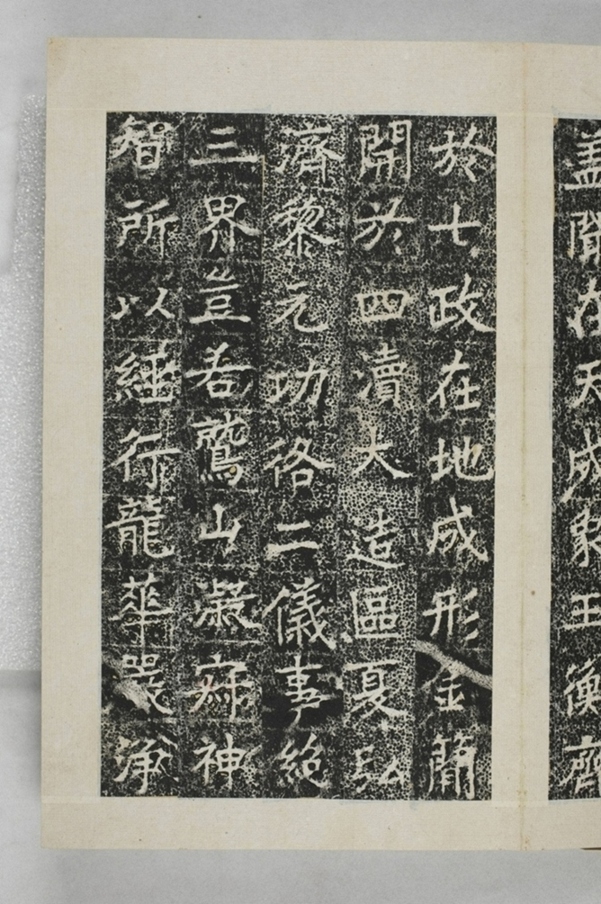 盖聞在天成象玉衡齊
於七政在地成形金蘭
開於四瀆大造區夏弘
濟黎元功佫二儀事絶
三界豈若鷲山凝寂神
智所以經行龍華淨